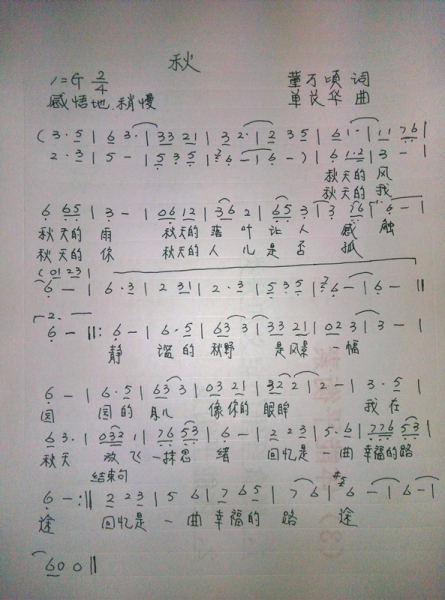 秋
1=G 2/4 董万顷 词
感悟地、稍慢 单长华 曲
(3·5|63·|33 21|32·|2 35|61·|11 76|
2·3|5-|535|6-|6-)|6 12|3-|
秋天的 风
秋天的 我
6 65|3-|06 12|36 2|65 3|3 76|6-|
秋天的 雨 秋天的 落 叶 让 人 感 触
秋天的 你 秋天的 人 儿 是 否 孤
(01 23)
6-|6·3|2 31|2·3|535|6-|6-||
2.
6-||:6-|6·5|63 3|33 21|02 3|3-|
静 谧的 秋野 是风景 一幅
6-|6·5|63 3|03 21|32 2|2-|3·5|
园 园的 月儿 像你的 眼眸 我在
63·|0332|76 53|6-|2 23|5·6|776 53|
秋天 放飞 一抹思 绪 回忆是 一曲 幸福的路
结束句
6-:||2 23|5 6|7 65|7 6|6-|6-|
途 回忆是 一 曲 幸福的 路 途
60 0||